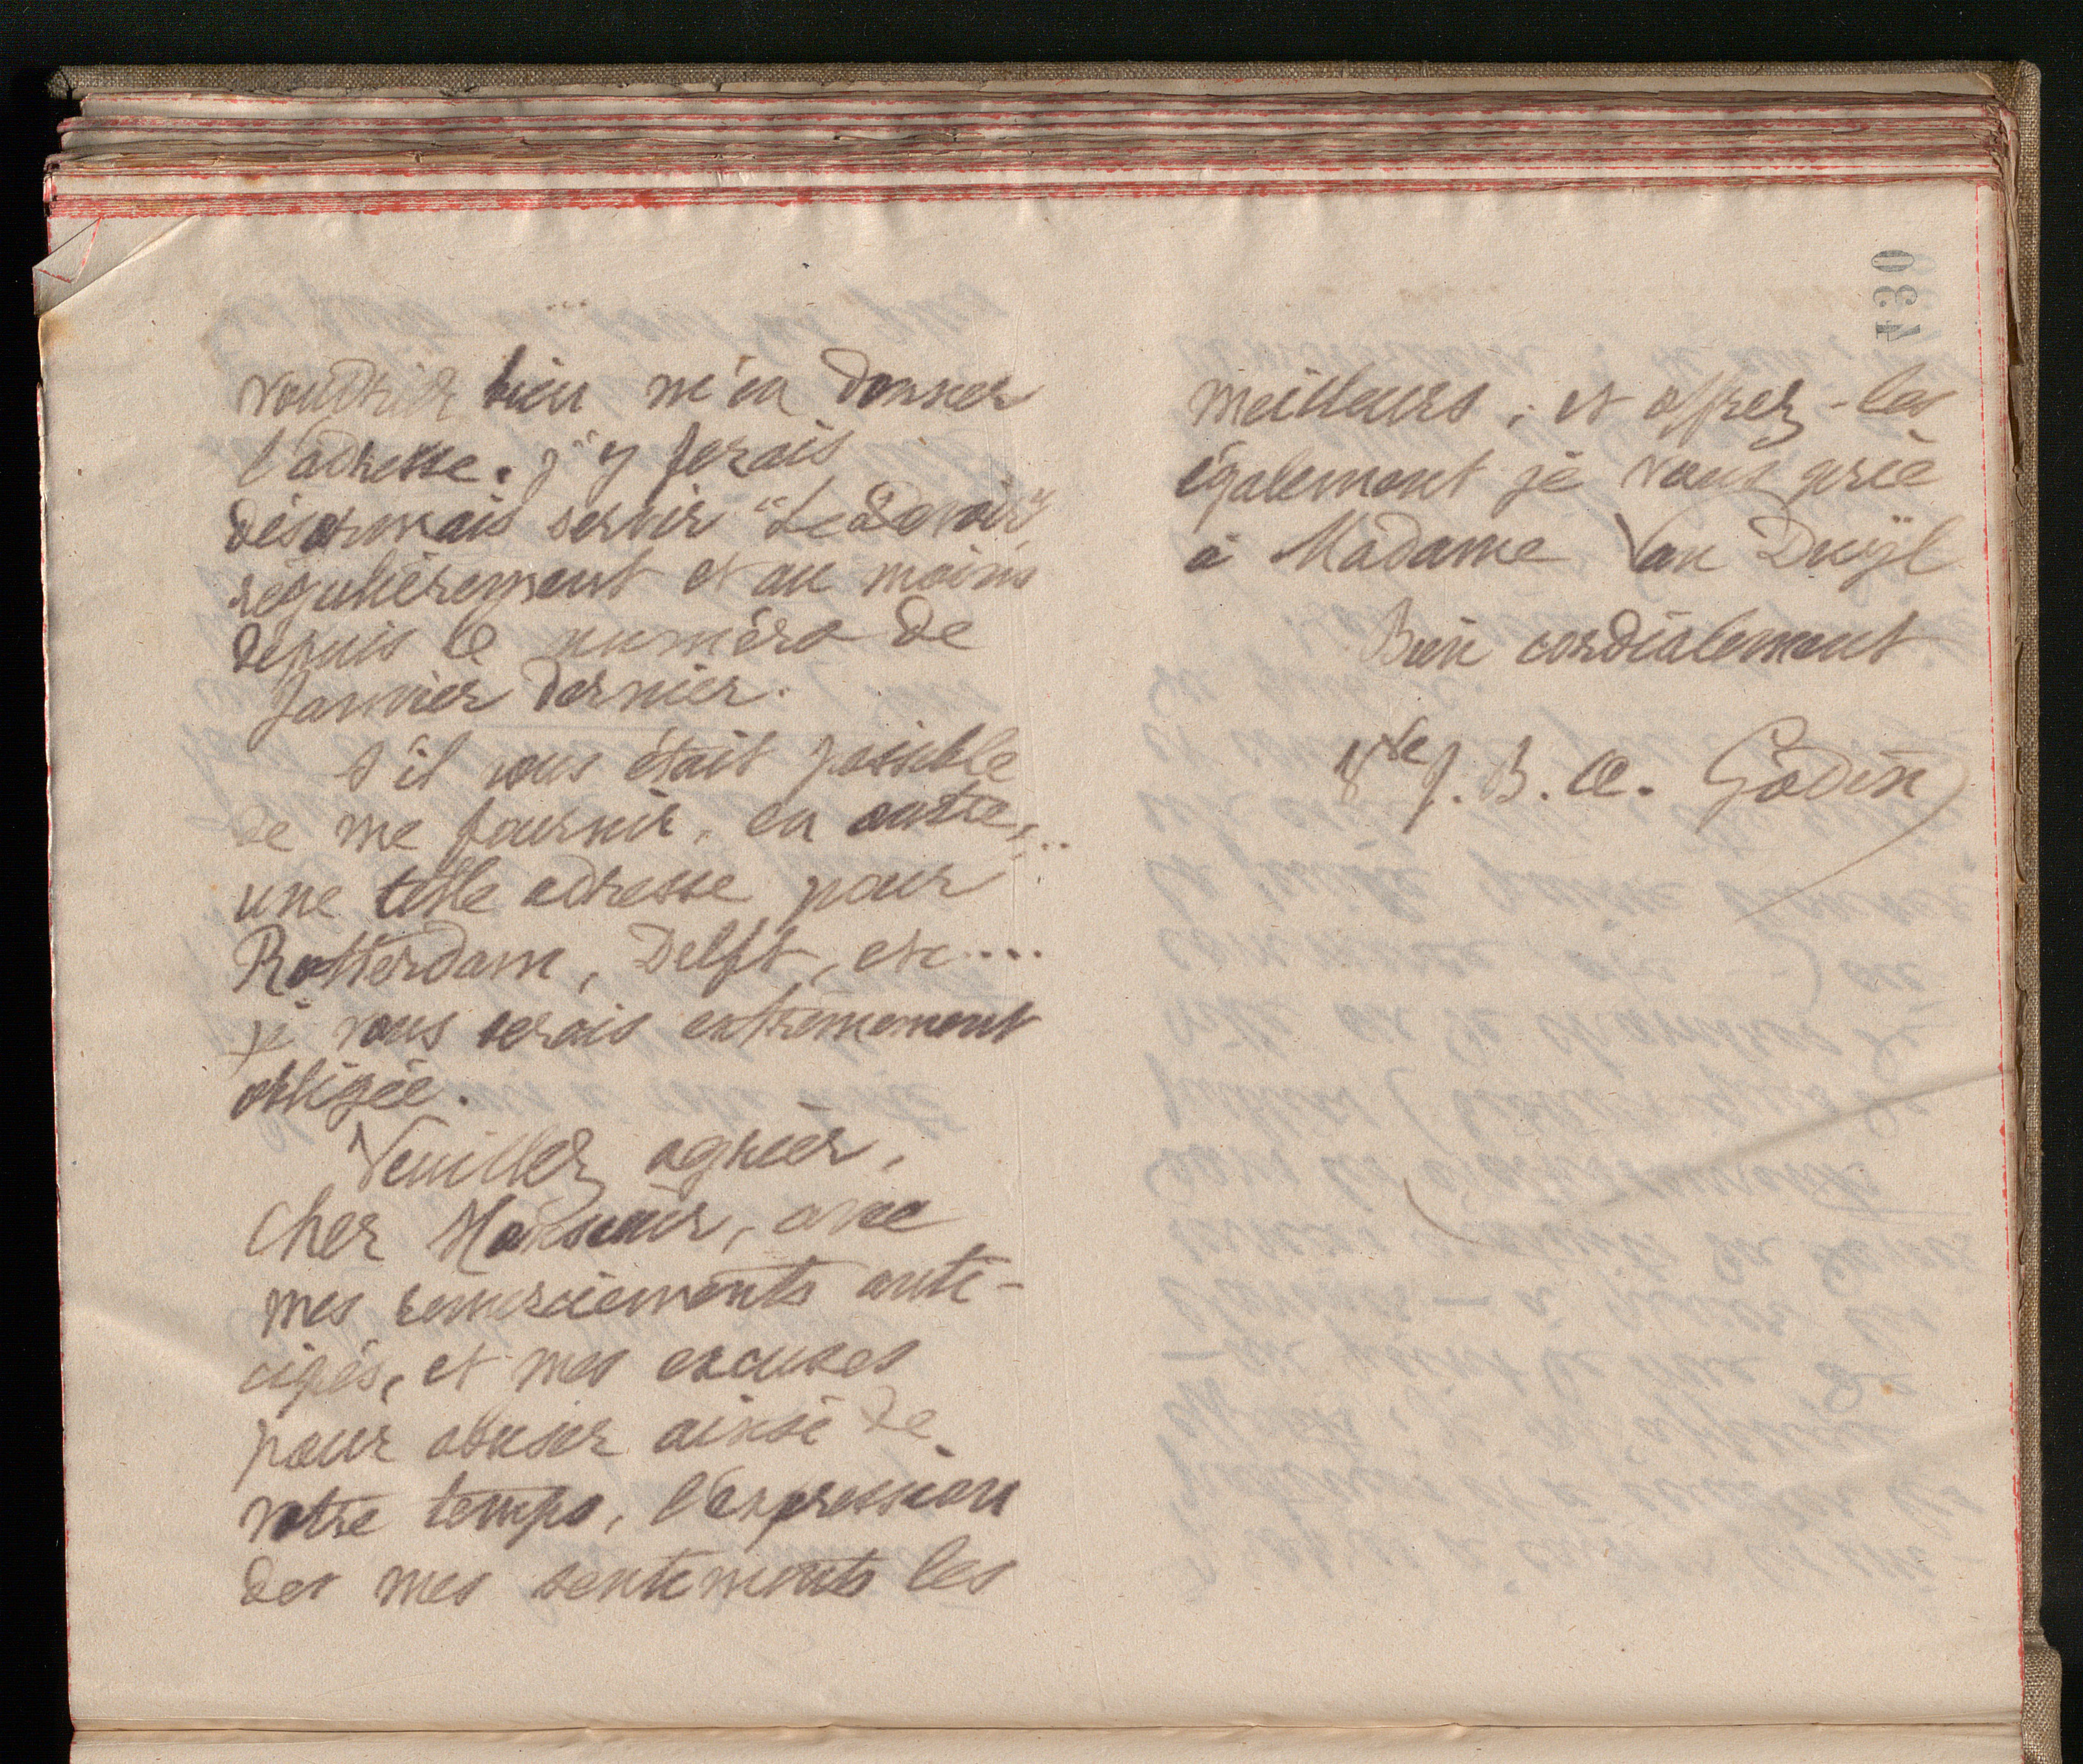 voudriez bien m'en donner
l'adresse. J'y ferais
désormais servir "Le Devoir"
régulièrement et au moins
depuis le numéro de
Janvier dernier.
S'il vous était possible
de me fournir, en outre,..
une telle adresse pour
Rotterdam, Delft, etc....
je vous serais extrêmement
obligée.
Veuillez agréer,
cher Monsieur, avec
mes remerciements anti-
cipés, et mes excuses
pour abuser ainsi de
votre temps, l'expression
des mes sentiments les
730
meilleurs; et offrez-les
également je vous prie
à Madame Van Duÿl
Bien cordialement
Vve J. B. A. Godin